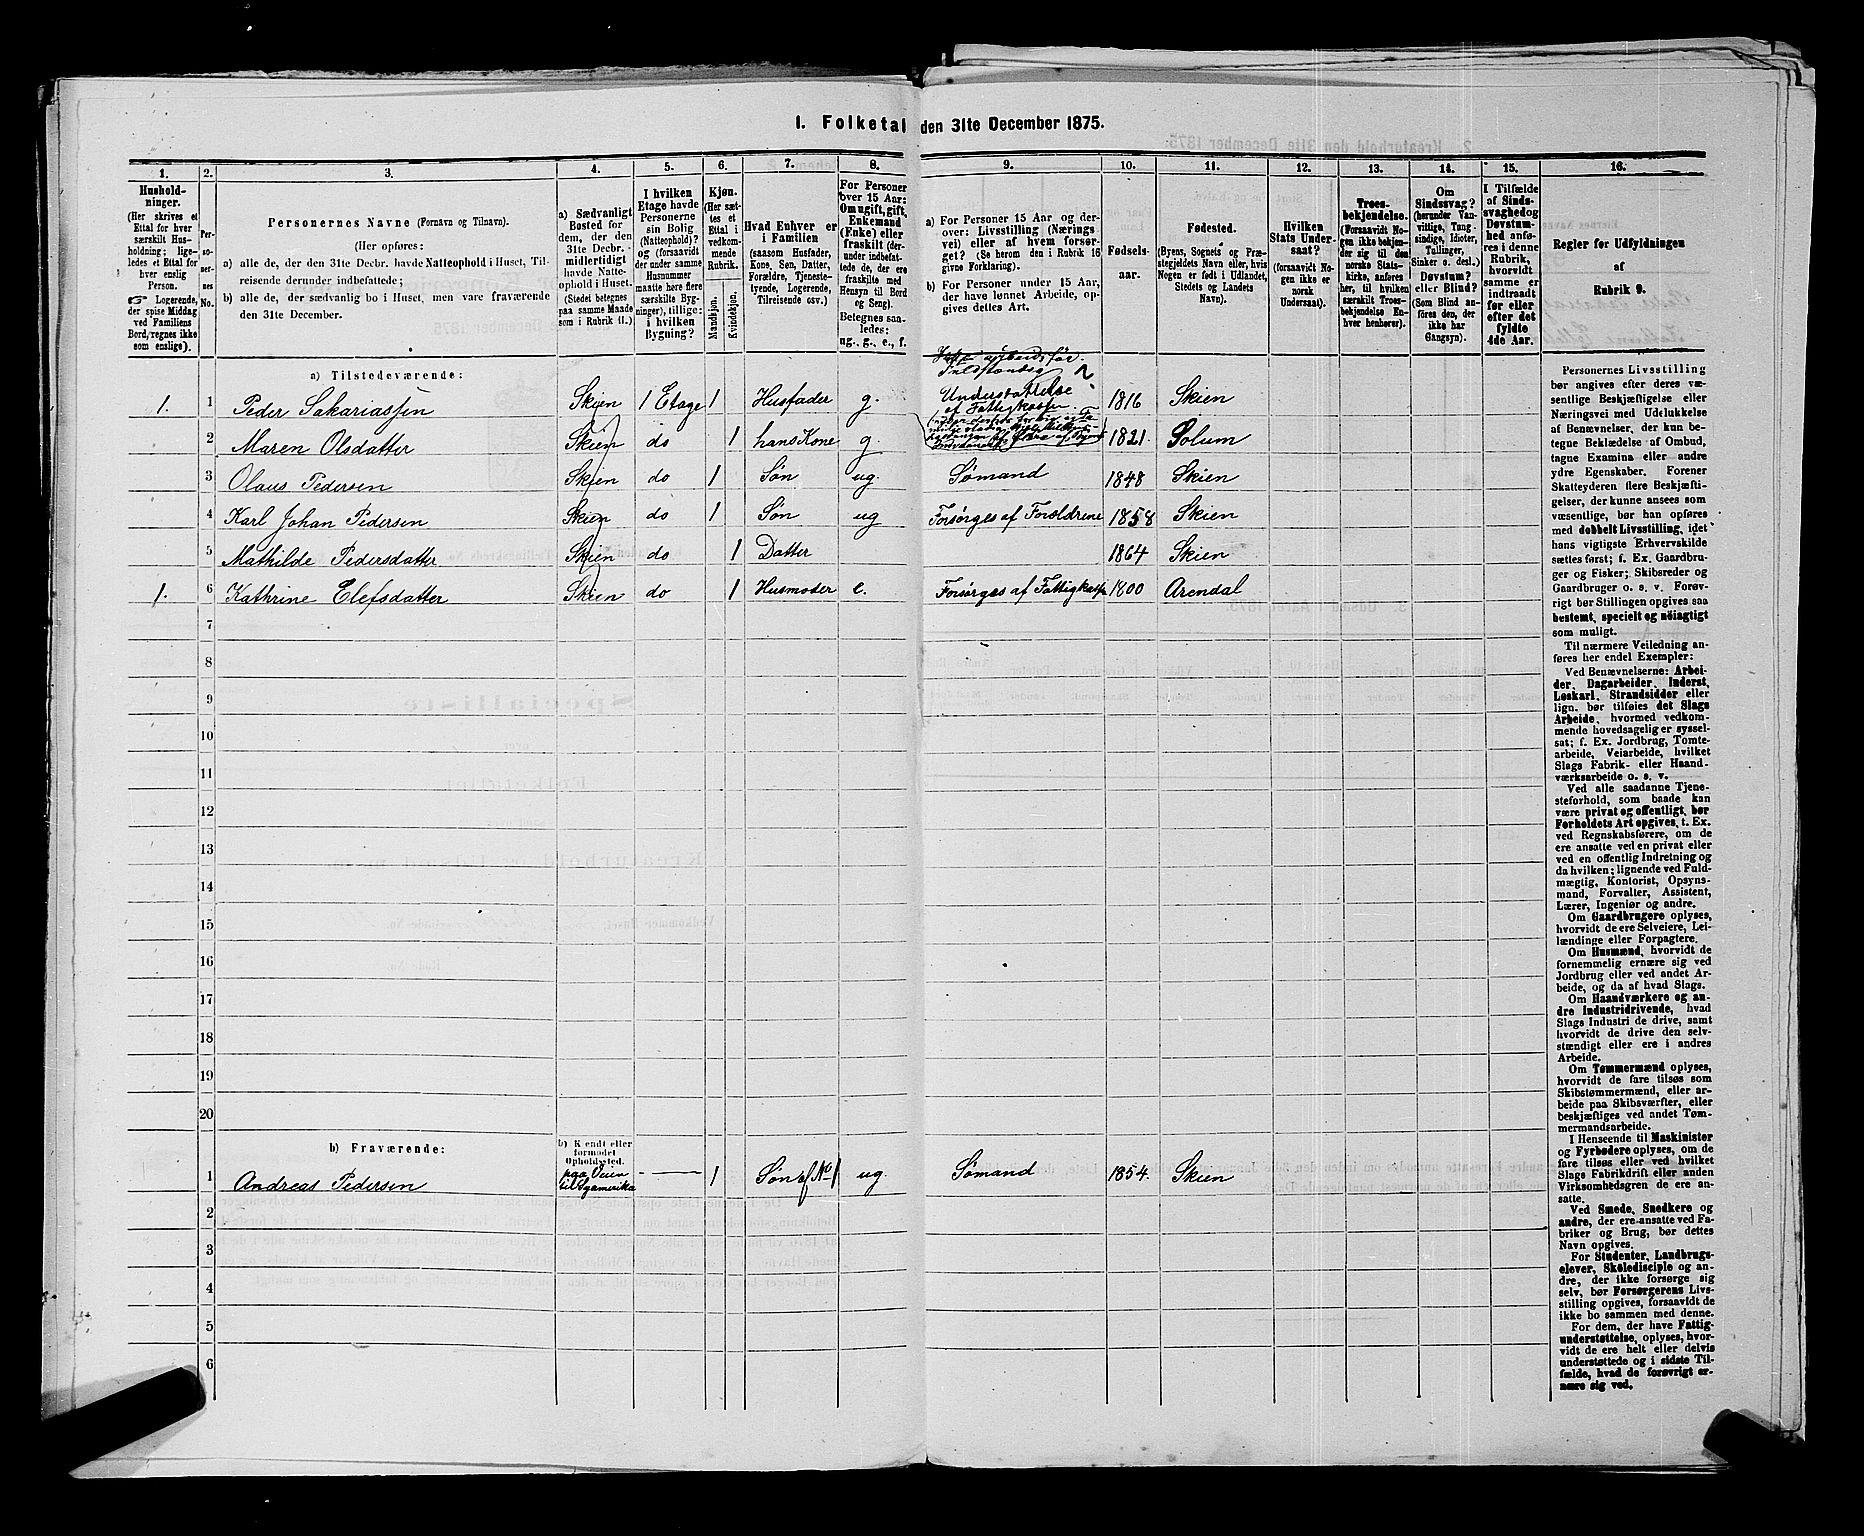 1. Folketal den 31te December 1875.
1. 2. 3. 4. 5. 6. 7. 8. 9. 10. 11. 12. 13. 14. 15. 16.
Hushold-
ninger.
(Her skrives et
Ettal for hver
særskilt Hus-
holdning; lige-
ledes et Ettal for
hver enslig
Person.
Logerende,
der spise Middag
ved Familiens
Bord, regnes ikke
som enslige).
Per-
so-
ner-
nes
No.
Personernes Navne (Fornavn og Tilnavn).
(Her opføres:
a) alle de, der den 31te Decbr. havde Natteophold i Huset, Til-
reisende derunder indbefattede;
b) alle de, der sædvanlig bo i Huset, men vare fraværende
den 31te December.
a) Sædvanligt
Bosted for
dem, der den
31te Decbr.
midlertidigt
havde Natte-
ophold i Huset.
(Stedet betegnes
paa samme Maade
som i Rubrik 11.)
I hvilken
Etage havde
Personerne
sin Bolig
(Natteophold)?
og (forsaavidt
der under samme
Husnummer
maatte høre flere
særskilte Byg-
ninger), tillige:
i hvilken
Bygning?
Kjøn.
(Her sæt-
tes et
Ettal i
vedkom-
mende
Rubrik.
Mandkjøn.
Kvindekjøn.
Hvad Enhver er
i Familien
(saasom Husfader,
Kone, Søn, Datter,
Forældre, Tjeneste-
tyende, Logerende,
Tilreisende osv.)
For Personer
over 15 Aar:
Om ugift, gift,
Enkemand
(Enke) eller
fraskilt (der-
under indbefat-
tede de, der ere
fraskilte med
Hensyn til Bord
og Seng).
Betegnes saa-
ledes:
ug., g., e., f.
a) For Personer 15 Aar og der-
over: Livsstilling (Nærings-
vei) eller af hvem forsør-
get? (Se herom den i Rubrik 16
givne Forklaring).
b) For Personer under 15 Aar,
der have lønnet Arbeide, op-
gives dettes Art.
Fødsels-
aar.
Fødested.
(Byens, Sognets og Præ-
stegjeldets Navn eller, hvis
Nogen er født i Udlandet,
Stedets og Landets
Navn).
Hvilken
Stats Under-
saat?
(forsaavidt No-
gen ikke er
norsk
Undersaat).
Troes-
bekjendelse.
(Forsaavidt No-
gen ikke bekjen-
der sig til den
norske Stats-
kirke, anføres
her, til hvilken
særskilt Troes-
bekjendelse En-
hver henhører).
Om
Sindssvag?
(herunder Van-
vittige, Tung-
sindige, Idioter,
Tullinger,
Sinker o. desl.)
Døvstum?
eller Blind?
(Som Blind an-
føres den, der
ikke har
Gangsyn).
I Tilfælde
af Sinds-
svaghed og
Døvstum-
hed anfø-
res i denne
Rubrik,
hvorvidt
samme er
indtraadt
før eller
efter det
fyldte
4de Aar.
Regler for Udfyldningen
af
Rubrik 9.
a) Tilstedeværende:
Understøttelse
af Fattigkassen
1. 1 Peder Sakariassen Skien 1 Etage 1 Husfader g. 1816 Skien
2 Maren Olsdatter Skien do 1 hans Kone g. 1821. Solum
3 Olaus Pedersen Skien do 1 Søn ug. Sømand 1848 Skien
4 Karl Johan Pedersen Skien do 1 Søn ug Forsørges af Forældrene 1858 Skien
5 Mathilde Pedersdatter Skien do 1 Datter 1864 Skien
1. 6 Kathrine Elefsdatter Skien do 1 Husmoder e. Forsørges af Fattigkasse 1800 Arendal
7
8
9
10
11
12
13
14
15
16
17
18
19
20
b) Fraværende:
b) Kjendt eller
formodet
Opholdssted.
1 Andreas Pedersen paa Veien — 1 Søn af No 1 ug. Sømand 1854. Skien
2
3
4
5
6
Personernes Livsstilling
bør angives efter deres væ-
sentlige Beskjæftigelse eller
Næringsvei med Udelukkelse
af Benævnelser, der kun be-
tegne Beklædelse af Ombud,
tagne Examina eller andre
ydre Egenskaber. Forener
Skatteyderen flere Beskjæfti-
gelser, der kunne ansees som
væsentlige, bør han opføres
med dobbelt Livsstilling, idet
hans vigtigste Erhvervskilde
sættes først; f. Ex. Gaardbru-
ger og Fisker; Skibsreder og
Gaardbruger o. s. v. Forøv-
rigt bør Stillingen opgives saa
bestemt, specielt og nøiagtigt
som muligt.
Til nærmere Veiledning an-
føres her endel Exempler:
Ved Benævnelserne: Arbei-
der, Dagarbeider, Inderst,
Løskarl, Strandsidder eller
lign. bør tilføies det Slags
Arbeide, hvormed vedkom-
mende hovedsagelig er syssel-
sat; f. Ex. Jordbrug, Tomte-
arbeide, Veiarbeide, hvilket
Slags Fabrik- eller Haand-
værksarbeide o. s. v.
Ved alle saadanne Tjene-
steforhold, som baade kan
være privat og offentligt, bør
Forholdets Art opgives, t. Ex.
ved Regnskabsførere, om de
ere ansatte ved en privat eller
ved en offentlig Indretning og
da hvilken; lignende ved Fuld-
mægtig, Kontorist, Opsyns-
mand, Forvalter, Assistent,
Lærer, Ingeniør og andre.
Om Gaardbrugere oplyses,
hvorvidt de ere Selveiere, Lei-
lændinge eller Forpagtere.
Om Husmænd, hvorvidt de
fornemmelig ernære sig ved
Jordbrug eller ved andet Ar-
beide, og da af hvad Slags.
Om Haandværkere og an-
dre Industridrivende, hvad
Slags Industri de drive, samt
hvorvidt de drive den selv-
stændigt eller ere i andres
Arbeide.
Om Tømmermænd oplyses,
hvorvidt de fare tilsøs som
Skibstømmermænd, eller ar-
beide paa Skibsværfter, eller
beskjæftiges ved andet Tøm-
mermandsarbeide.
I Henseende til Maskinister
og Fyrbødere oplyses, om de
fare tilsøs eller ved hvilket
Slags Fabrikdrift eller anden
Virksomhedsgren de ere an-
satte.
Ved Smede, Snedkere og
andre, der ere ansatte ved Fa-
briker og Brug, bør dettes
Navn opgives.
For Studenter, Landbrugs-
elever, Skoledisciple og an-
dre, der ikke forsørge sig
selv, bør Forsørgerens Livs-
stilling opgives, forsaavidt de
ikke bo sammen med denne.
For dem, der have Fattig-
understøttelse, oplyses, hvor-
vidt de ere helt eller delvis
understøttede og i sidste Til-
fælde, hvad de forøvrigt er-
nære sig ved.